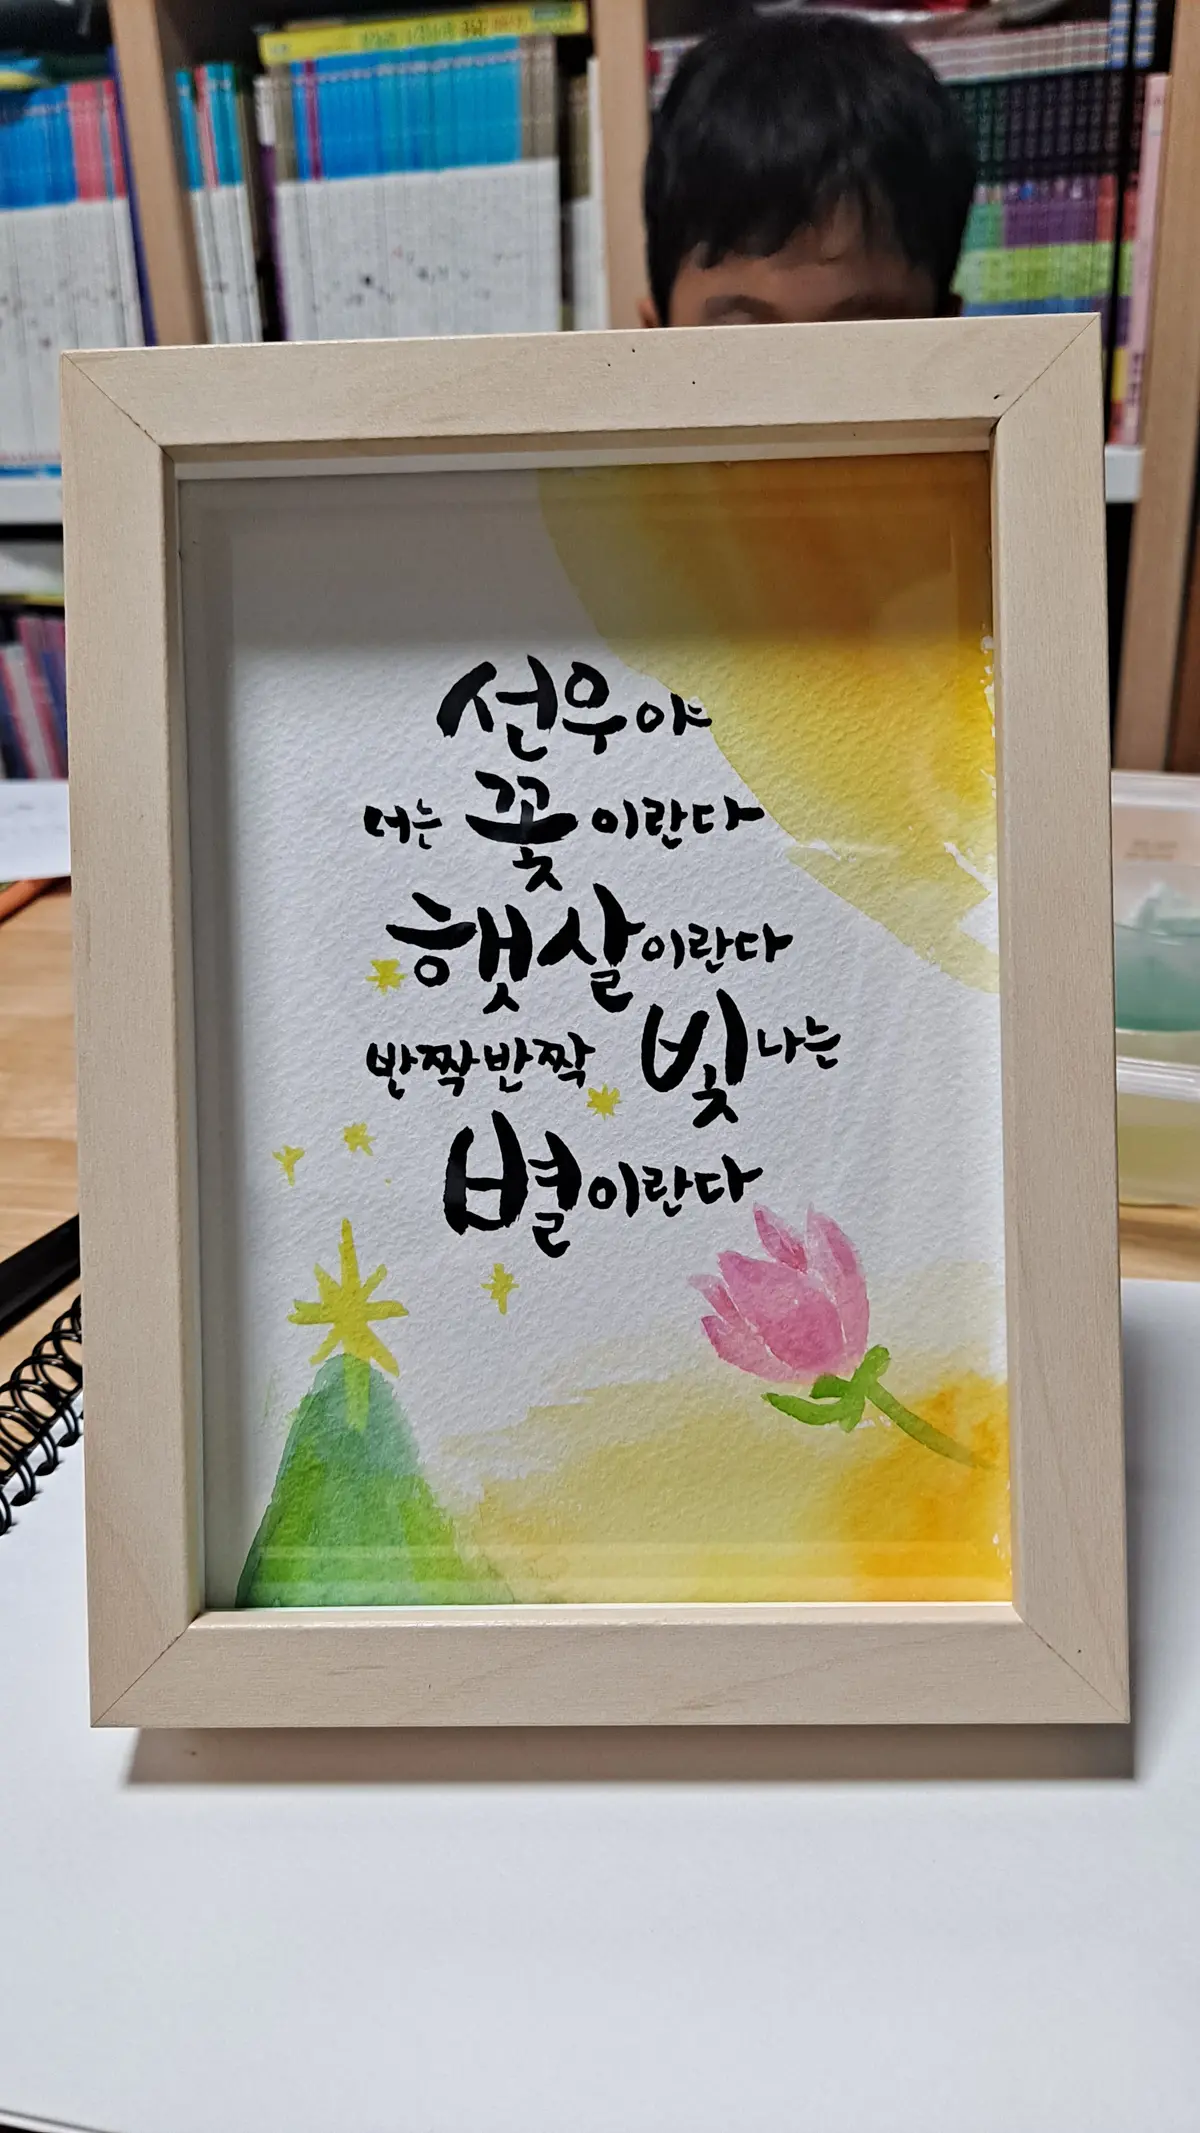 선우야
너는 꽃이란다
햇살이란다
반짝반짝 빛나는
별이란다